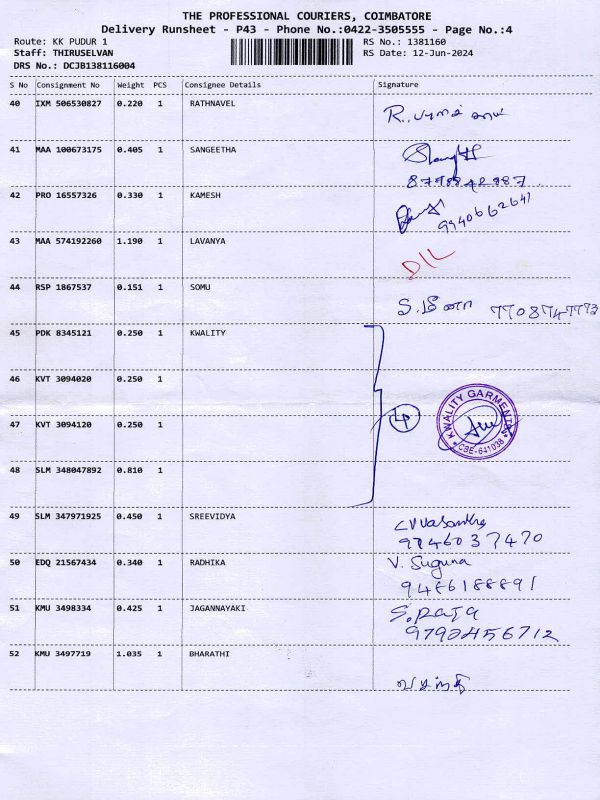 THE PROFESSIONAL COURIERS, COIMBATORE
Delivery Runsheet - P43 - Phone No.:0422-3505555 - Page No.:4
Route: KK PUDUR 1 RS No.: 1381160
Staff: THIRUSELVAN RS Date: 12-Jun-2024
DRS No.: DCJB138116004
S No Consignment No Weight PCS Consignee Details Signature
40 IXM 506530827 0.220 1 RATHNAVEL
41 MAA 100673175 0.405 1 SANGEETHA
8798842987
42 PRO 16557326 0.330 1 KAMESH
9940662641
43 MAA 574192260 1.190 1 LAVANYA
D/L
44 RSP 1867537 0.151 1 SOMU
S.மீனா 7708747773
45 PDK 8345121 0.250 1 KWALITY
46 KVT 3094020 0.250 1
47 KVT 3094120 0.250 1
KWALITY GARMENTN
CBE-641038
48 SLM 348047892 0.810 1
49 SLM 347971925 0.450 1 SREEVIDYA
9746037470
50 EDQ 21567434 0.340 1 RADHIKA V. Suguna
9486188891
51 KMU 3498334 0.425 1 JAGANNAYAKI S.RAJA
9792456712
52 KMU 3497719 1.035 1 BHARATHI